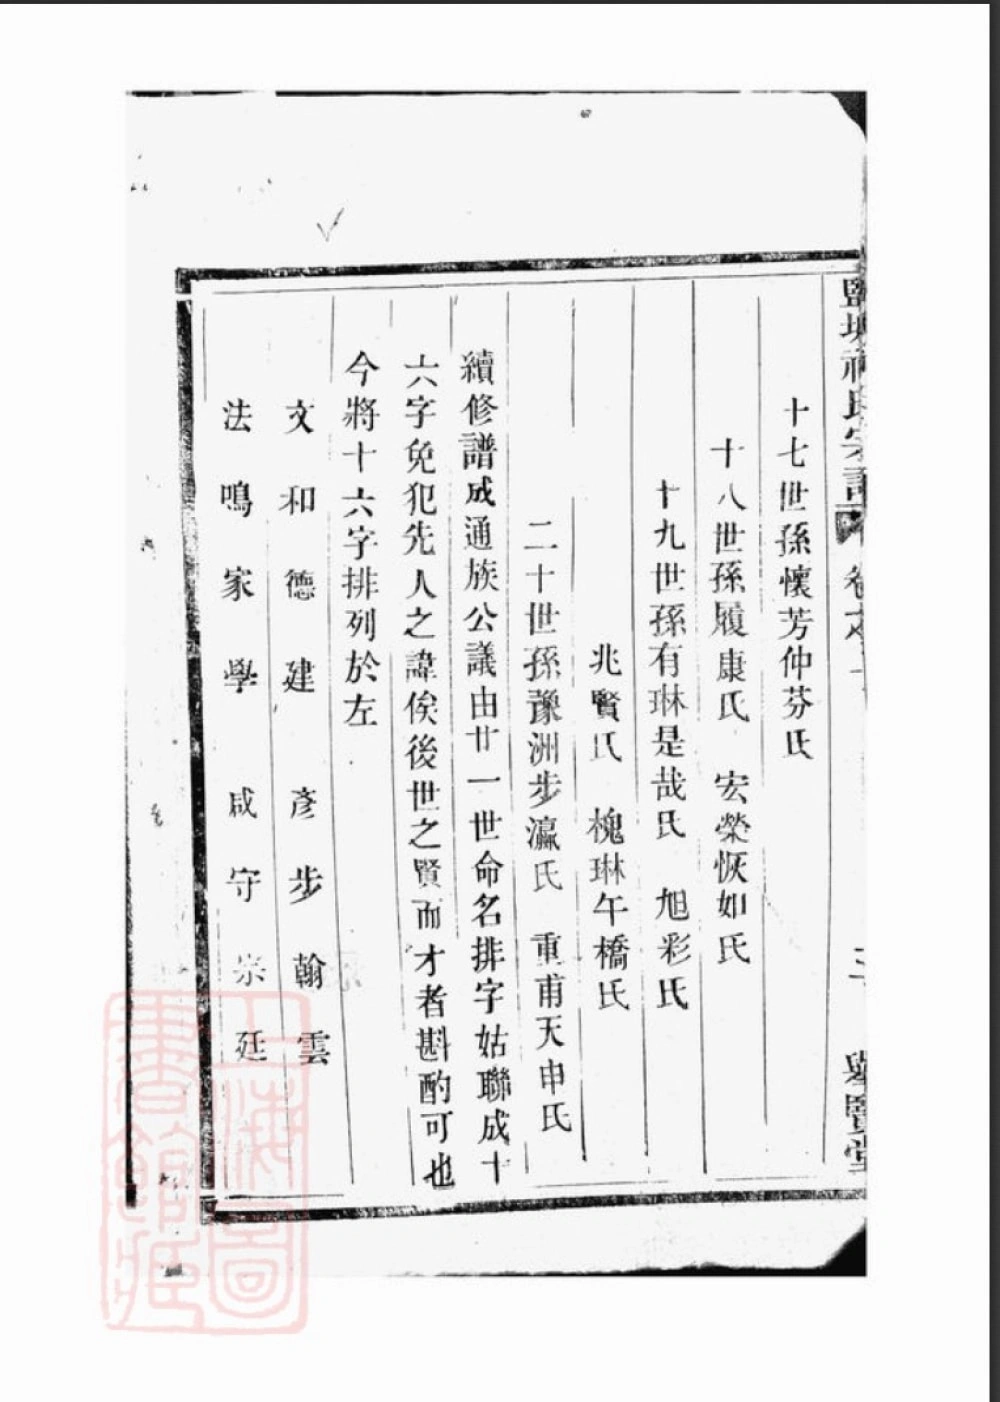 十七世孫懷芳仲芬氏
十八世孫履康氏 宏榮恢如氏
十九世孫有琳是哉氏 旭彩氏
兆賢氏 槐琳午橋氏
二十世孫豫洲步瀛氏 重甫天申氏
續修譜成通族公議由廿一世命名排字姑聯成十
六字免犯先人之諱俟後世之賢而才者斟酌可也
今將十六字排列於左
文和德建 彥步翰雲
法鳴家學 咸守崇廷
氏宗譜
卷之
賢堂
上海圖書館藏